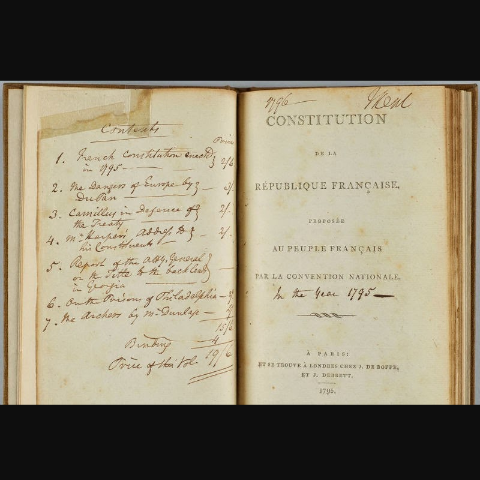 Contents
Price
1. French Constitution
in 1795 2/6
2. The Dangers of Europe by
DuPan
3. Camillus in Defence of
the Treaty 2/-
4. Mr Harpers Address to
his Constituents 2/-
5. Report of the Atty. General
on the Title to the back land
in Georgia
6. On the Prisons of Philadelphia
7. The Archers by Mr Dunlap
15/6
Binding 4
Price of this Vol. 19/6
1796
CONSTITUTION
DE LA
RÉPUBLIQUE FRANÇAISE,
PROPOSÉE
AU PEUPLE FRANÇAIS
PAR LA CONVENTION NATIONALE.
In the Year 1795
À PARIS:
ET SE TROUVE À LONDRES CHEZ J. DE BOFFE,
ET J. DEBRETT,